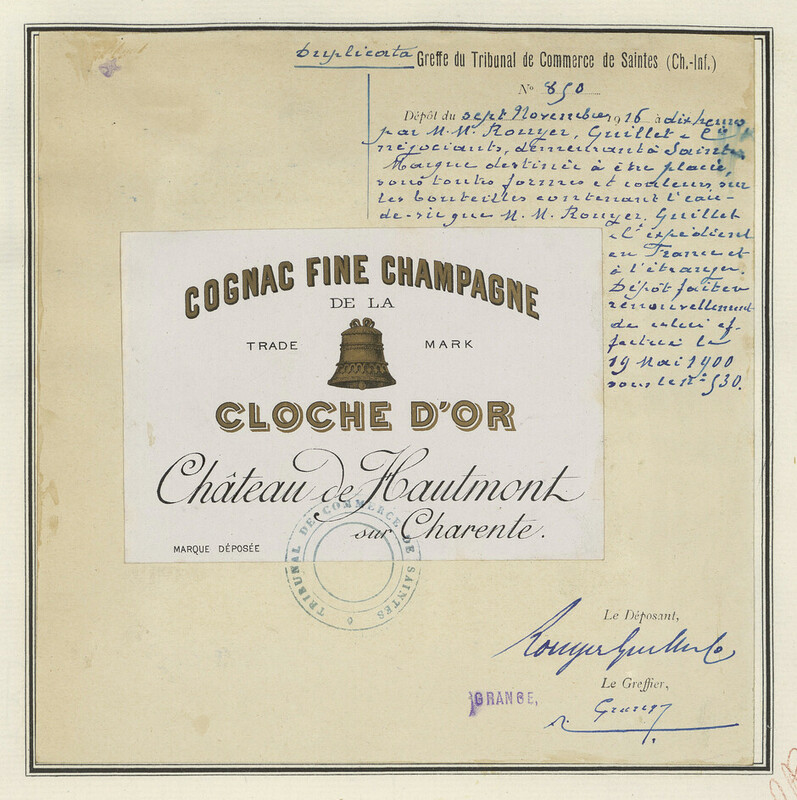 Duplicata Greffe du Tribunal de Commerce de Saintes (Ch.-Inf.)
N° 850
Dépôt du sept Novembre 1916 à dix heures
par M.M. Rouyer, Guillet & Cie
négociants, demeurant à Saintes
Marque destinée à être placée,
sous toutes formes et couleurs, sur
les bouteilles contenant l'eau-
de-vie que M.M. Rouyer, Guillet
& Cie expédient
en France et
à l'étranger.
Dépôt fait en
renouvellement
de celui ef-
fectué le
19 Mai 1900
sous le n° 530.
COGNAC FINE CHAMPAGNE
DE LA
TRADE MARK
CLOCHE D'OR
Château de Hautmont
sur Charente.
MARQUE DÉPOSÉE
TRIBUNAL DE COMMERCE DE SAINTES
Le Déposant,
Rouyer Guillet & Co
Le Greffier,
GRANGE,